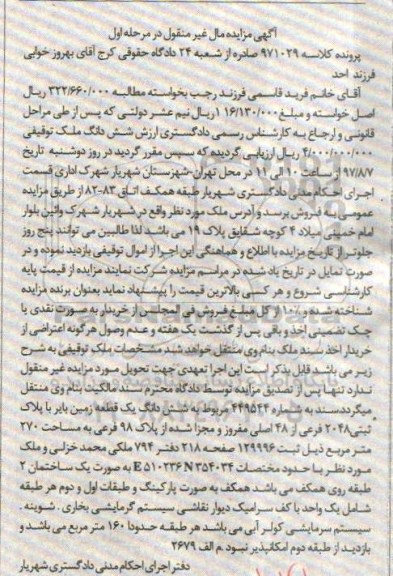 آگهی مزایده مال غیر منقول در مرحله اول
پرونده کلاسه ۹۷۱۰۲۹ صادره از شعبه ۲۴ دادگاه حقوقی کرج آقای بهروز خوابی
فرزند احد
آقای خانم فرید قاسمی فرزند رجب بخواسته مطالبه ۳۲۲/۶۶۰/۰۰۰ ریال
اصل خواسته و مبلغ ۱۶/۱۳۰/۰۰۰ ریال نیم عشر دولتی که پس از طی مراحل
قانونی و ارجاع به کارشناس رسمی دادگستری ارزش شش دانگ ملک توقیفی
۴/۰۰۰/۰۰۰/۰۰۰ ریال ارزیابی گردیده که سپس مقرر گردید در روز دوشنبه تاریخ
۹۷/۸/۷ از ساعت ۱۰ الی ۱۱ در محل تهران-شهرستان شهریار شهرک اداری قسمت
اجرای احکام مدنی دادگستری شهریار طبقه همکف اتاق ۸۳-۸۲ از طریق مزایده
عمومی به فروش برسد و آدرس ملک مورد نظر واقع در شهریار شهرک وائین بلوار
امام خمینی میلاد ۴ کوچه شقایق پلاک ۱۹ می باشد لذا طالبین می توانند پنج روز
جلوتر از تاریخ مزایده با اطلاع و هماهنگی این اجرا از اموال توقیفی بازدید نموده و در
صورت تمایل در تاریخ یاد شده در مراسم مزایده شرکت نمایند مزایده از قیمت پایه
کارشناسی شروع و هر کسی بالاترین قیمت را پیشنهاد نماید بعنوان برنده مزایده
شناخته شده و ۱۰٪ از کل مبلغ فروش فی المجلس از خریدار به صورت نقدی یا
چک تضمینی اخذ و باقی پس از گذشت یک هفته و عدم وصول هر گونه اعتراضی از
خریدار اخذ سند ملک بنام وی منتقل خواهد شد مشخصات ملک توقیفی به شرح
زیر می باشد قابل ذکر است این اجرا تعهدی جهت تحویل مورد مزایده غیر منقول
ندارد تنها پس از تصدیق مزایده توسط دادگاه محترم سند مالکیت بنام وی منتقل
میگردد. سند به شماره ۴۴۹۵۴۴ مربوط به شش دانگ یک قطعه زمین بایر با پلاک
ثبتی ۲۰۴۸ فرعی از ۴۸ اصلی مفروز و مجزا شده از پلاک ۹۸ فرعی به مساحت ۲۷۰
متر مربع ذیل ثبت ۱۲۹۹۹۶ صفحه ۲۱۸ دفتر ۷۹۴ ملکی محمد خزلی و ملک
مورد نظر با حدود مختصات E ۵۱۰۲۳۶ N ۳۵۴۰۳۴ به صورت یک ساختمان ۲
طبقه روی همکف می باشد همکف به صورت پارکینگ و طبقات اول و دوم هر طبقه
شامل یک واحد با کف سرامیک دیوار نقاشی سیستم گرمایشی بخاری . شوینه .
سیستم سرمایشی کولر آبی می باشد هر طبقه حدودا ۱۶۰ متر مربع می باشد و
بازدید از طبقه دوم امکانپذیر نبود .م الف ۲۶۷۹
دفتر اجرای احکام مدنی دادگستری شهریار